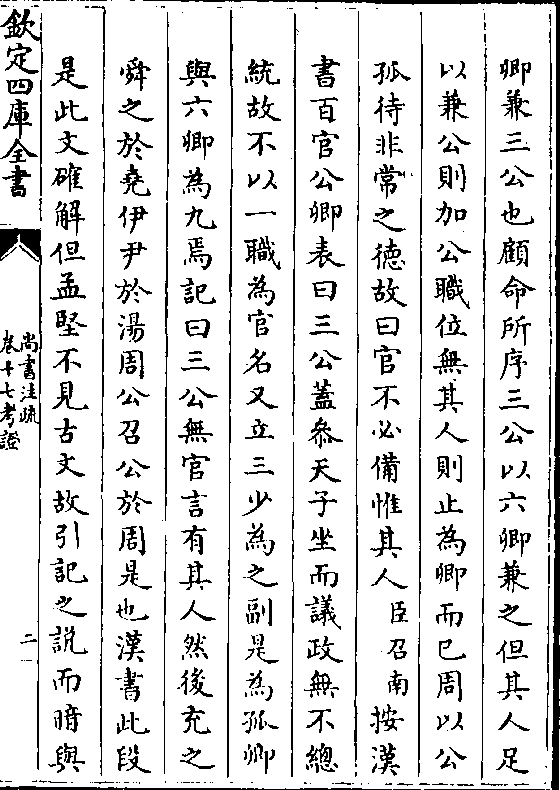 卿兼三公也顧命所序三公以六卿兼之但其人足
以兼公則加公職位無其人則止為卿而已周以公
孤待非常之徳故曰官不必備惟其人臣召南按漢
書百官公卿表曰三公蓋叅天子坐而議政無不總
統故不以一職為官名又立三少為之副是為孤卿
與六卿為九焉記曰三公無官言有其人然後充之
舜之於堯伊尹於湯周公召公於周是也漢書此段
是此文確解但孟堅不見古文故引記之説而暗與
欽定四庫全書
尚書注疏
卷十七考證
二